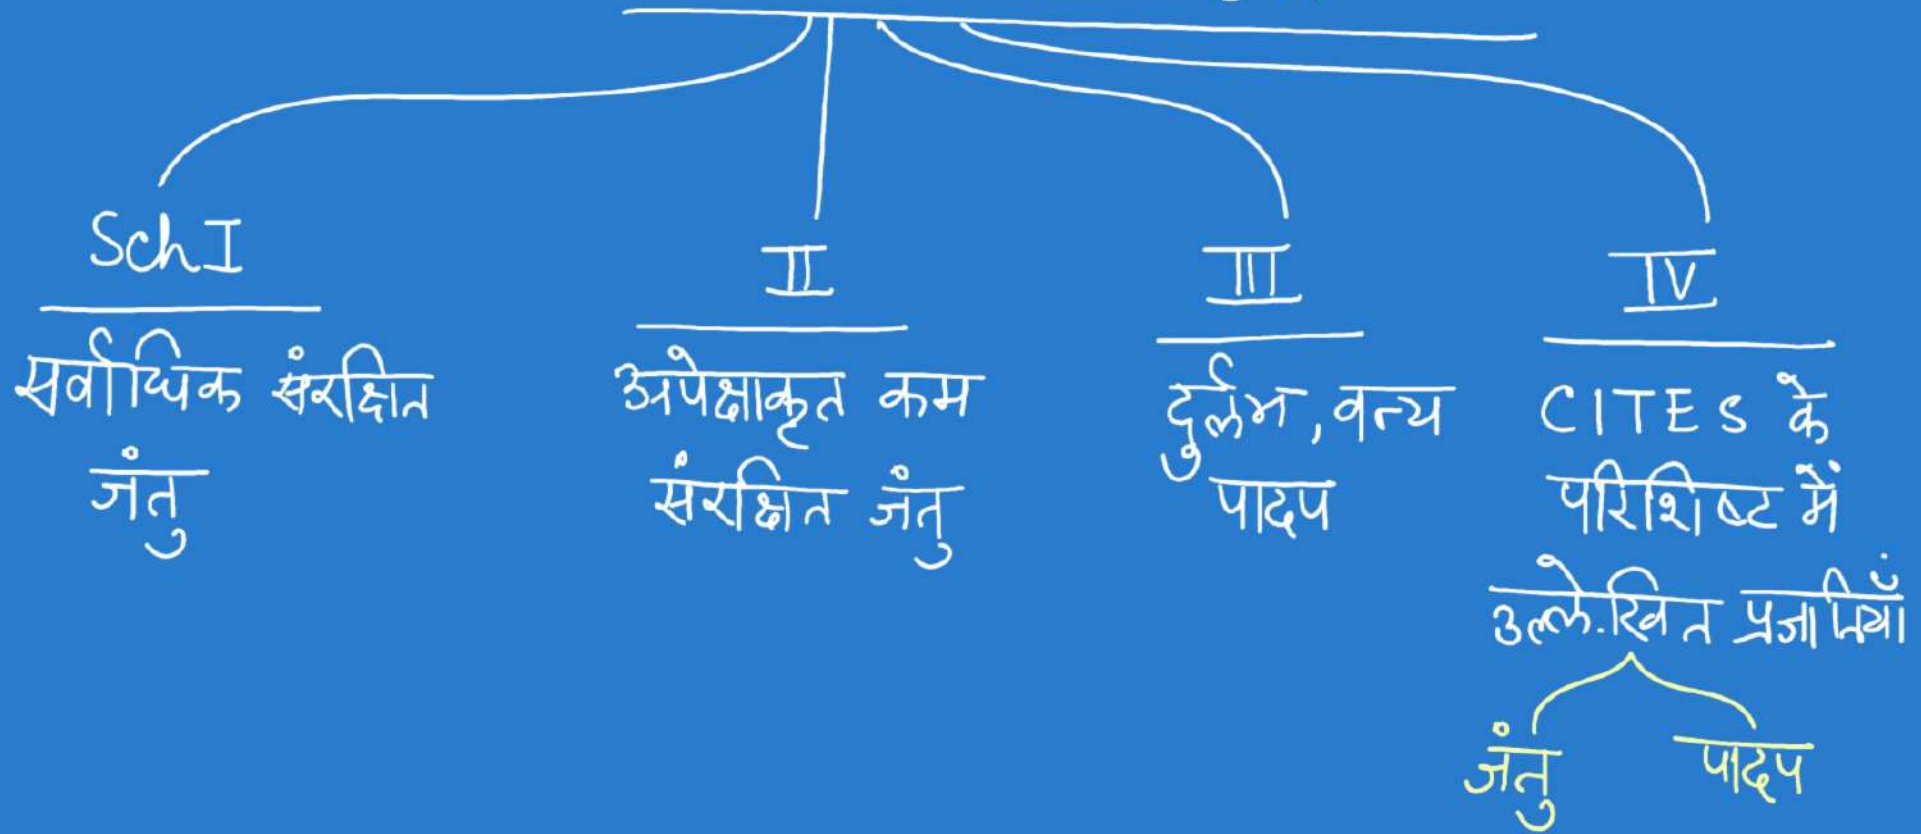 Sch I
II
III
IV
सर्वाधिक संरक्षित
जंतु
अपेक्षाकृत कम
संरक्षित जंतु
दुर्लभ, वन्य
पादप
CITES के
परिशिष्ट में
उल्लेखित प्रजातियाँ
जंतु
पादप